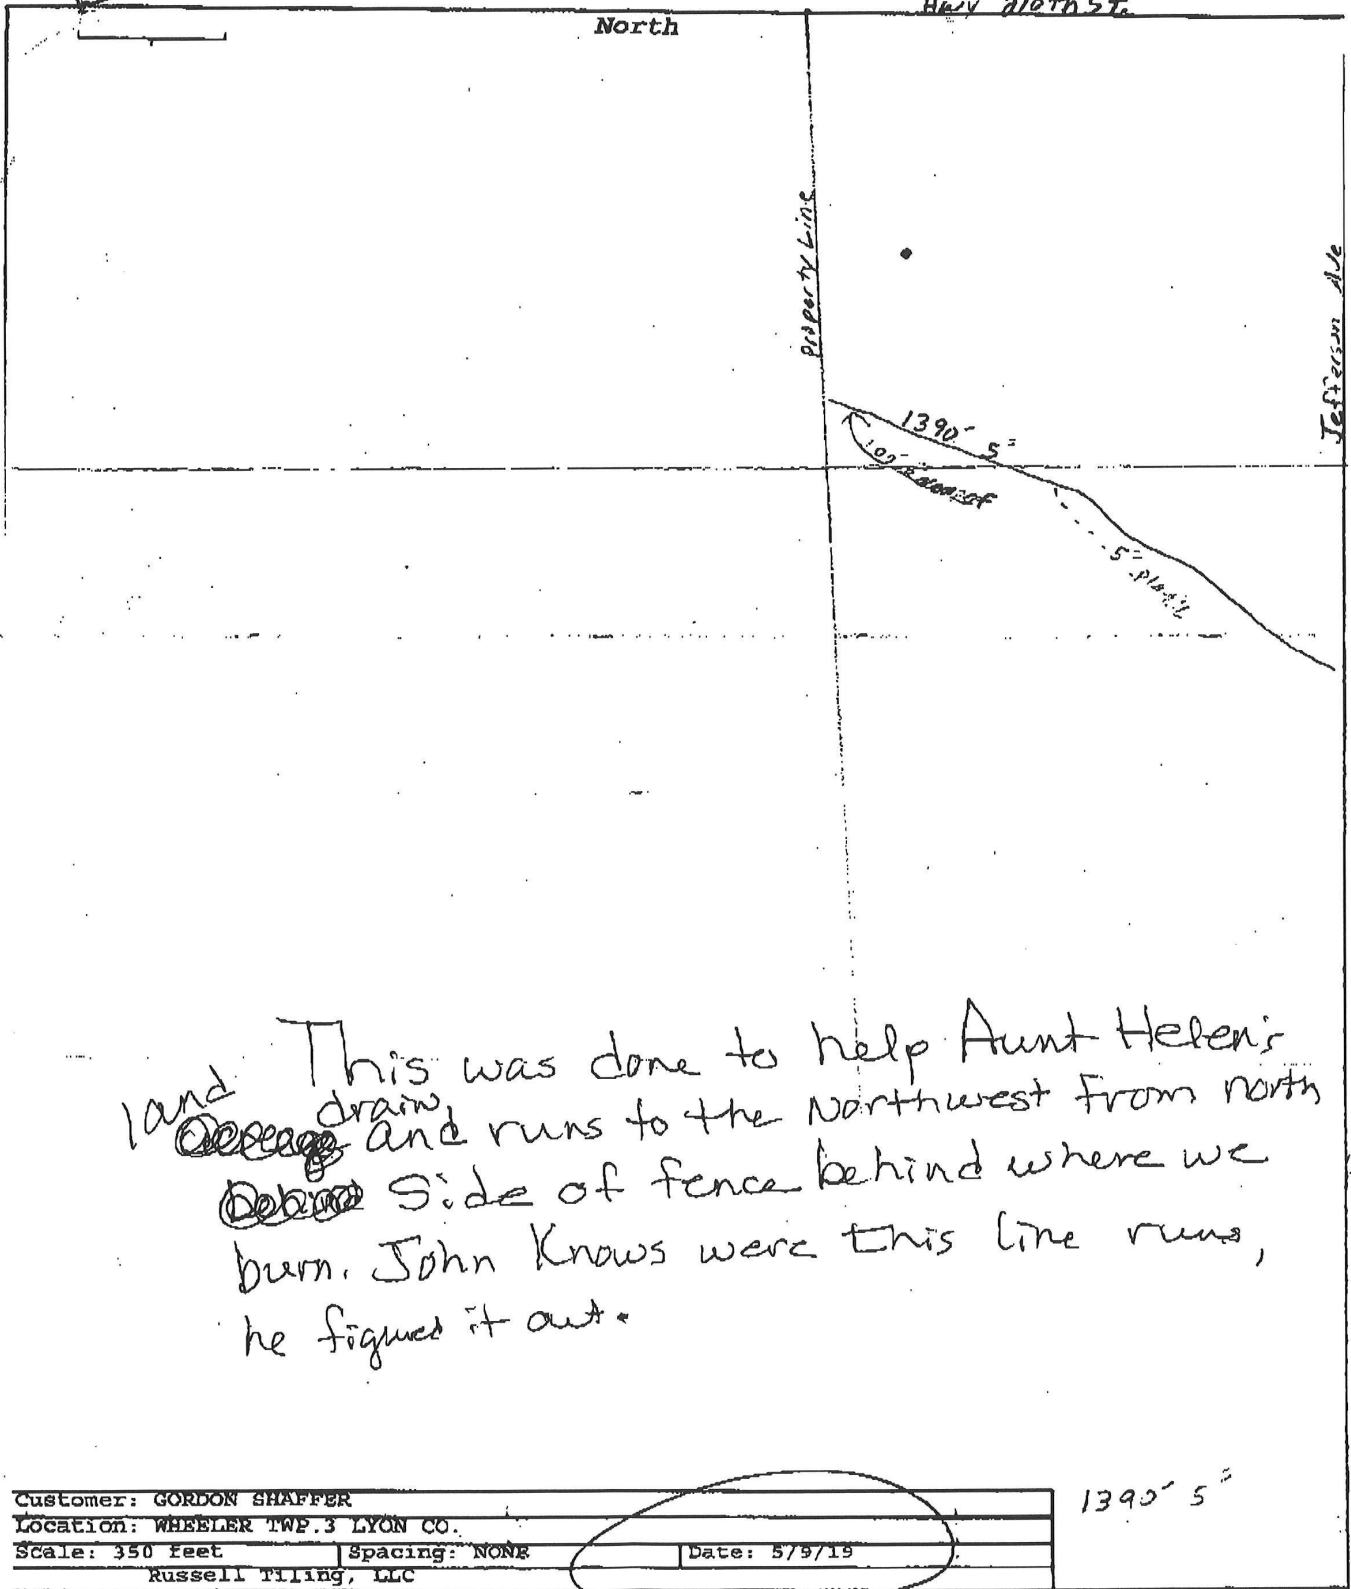 North
Hwy 210th St.
Property Line
Jefferson Ave
1390' 5"
100'
5" plastic
This was done to help Aunt Helen's
land drain, and runs to the Northwest from north
Side of fence behind where we
burn. John Knows were this line runs,
he figured it out.
Customer: GORDON SHAFFER
Location: WHEELER TWP.3 LYON CO.
Scale: 350 feet Spacing: NONE Date: 5/9/19
Russell Tiling, LLC
1390' 5"